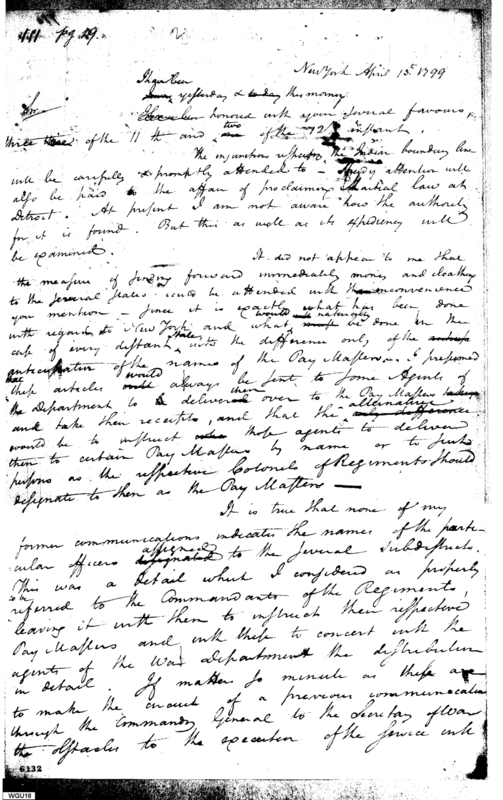 pg 29.
New York April 15th 1799
I have been
yesterday & to day this morng
Sir
honored with your several favours
of the 11th and two of the 12 instant.
The injunction respectg the Indian boundary line
will be carefully & promptly attended to — Speedy attention will
also be paid to the affair of proclaiming Martial law at
Detroit. At present I am not aware how the authority
for it is found. But this as well as its expediency will
be examined.
It did not appear to me that
the measure of sending forward immediately money and cloathing
to the several States would be attended with the inconvenience
you mention – since it is exactly what has been done
with regard to New York and what would naturally be done in the
case of every distant State with the difference only of the
anticipation of the names of the Pay Masters. I presumed
that these articles would always be sent to some Agents of
the Department to be delivered over to the Pay Masters
and take their receipts, and that the alternative
would be to instruct those agents to deliver
them to certain Pay Masters by name or to such
persons as the respective Colonels of Regiments should
designate to them as the Pay Masters —
It is true that none of my
former communications indicates the names of the parti-
cular officers assigned designated to the several Subdistricts.
This was a detail which I considered as properly
to be
referred to the Commandants of the Regiments,
leaving it with them to instruct their respective
Pay Masters and with these to concert with the
agents of the War Department the distribution
in detail. If matters so minute as these are
to make the circuit of a previous communication
through the Commandg General to the Secretary of War
the obstacles to the execution of the service will
6132
WGU18